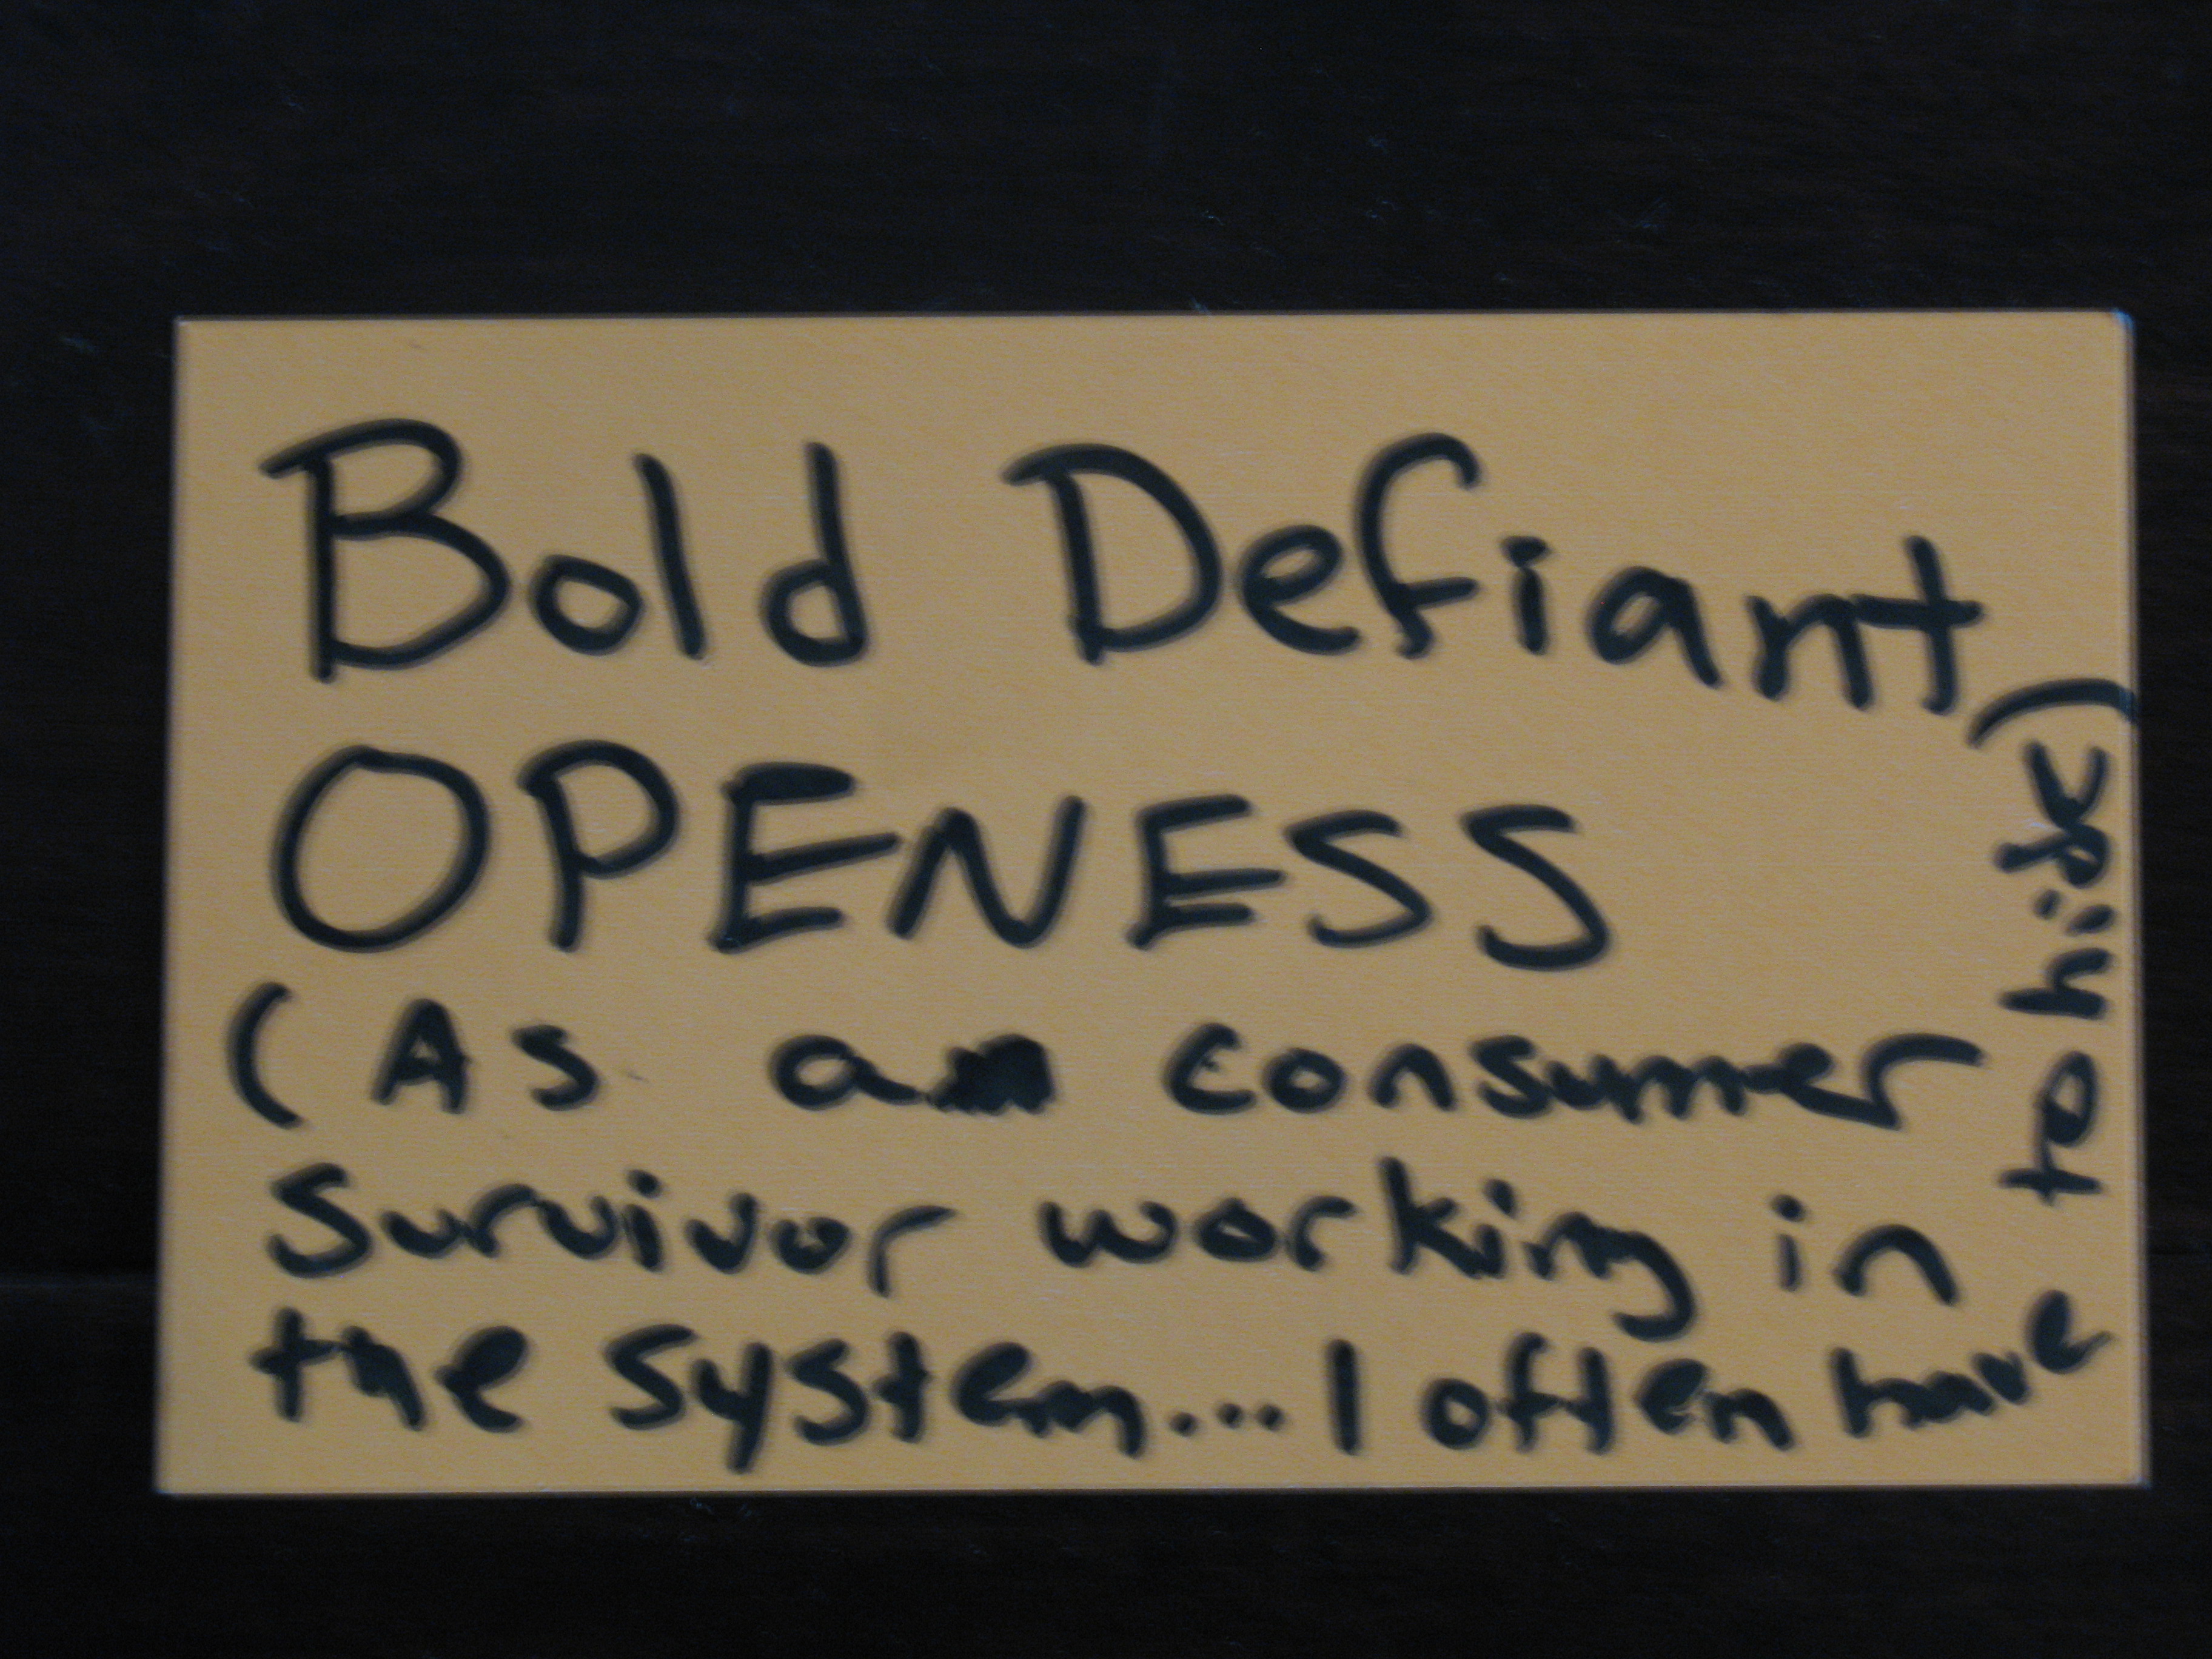 Bold Defiant
OPENESS
(As a consumer
Survivor working in
the system... I often have
to hide)